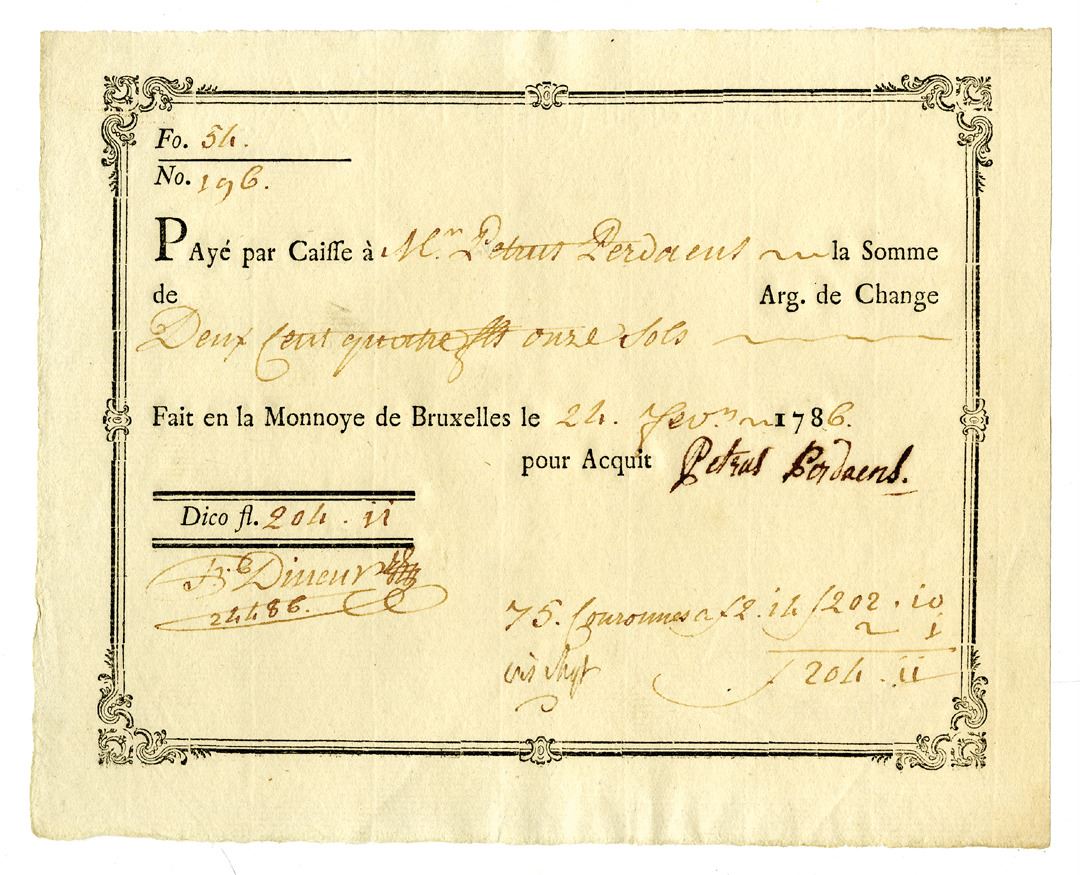 Fo. 54.
No. 196.
PAyé par Caisse à Mr. Petrus Perdaens la Somme
de Arg. de Change
Deux Cent quatre fls onze Sols
Fait en la Monnoye de Bruxelles le 24. Fevr. 1786.
pour Acquit Petrus Perdaens.
Dico fl. 204 . 11
Dineur
24486.
75. Couronnes a f 2. 14 f 202 . 10
2 1
f 204 . 11